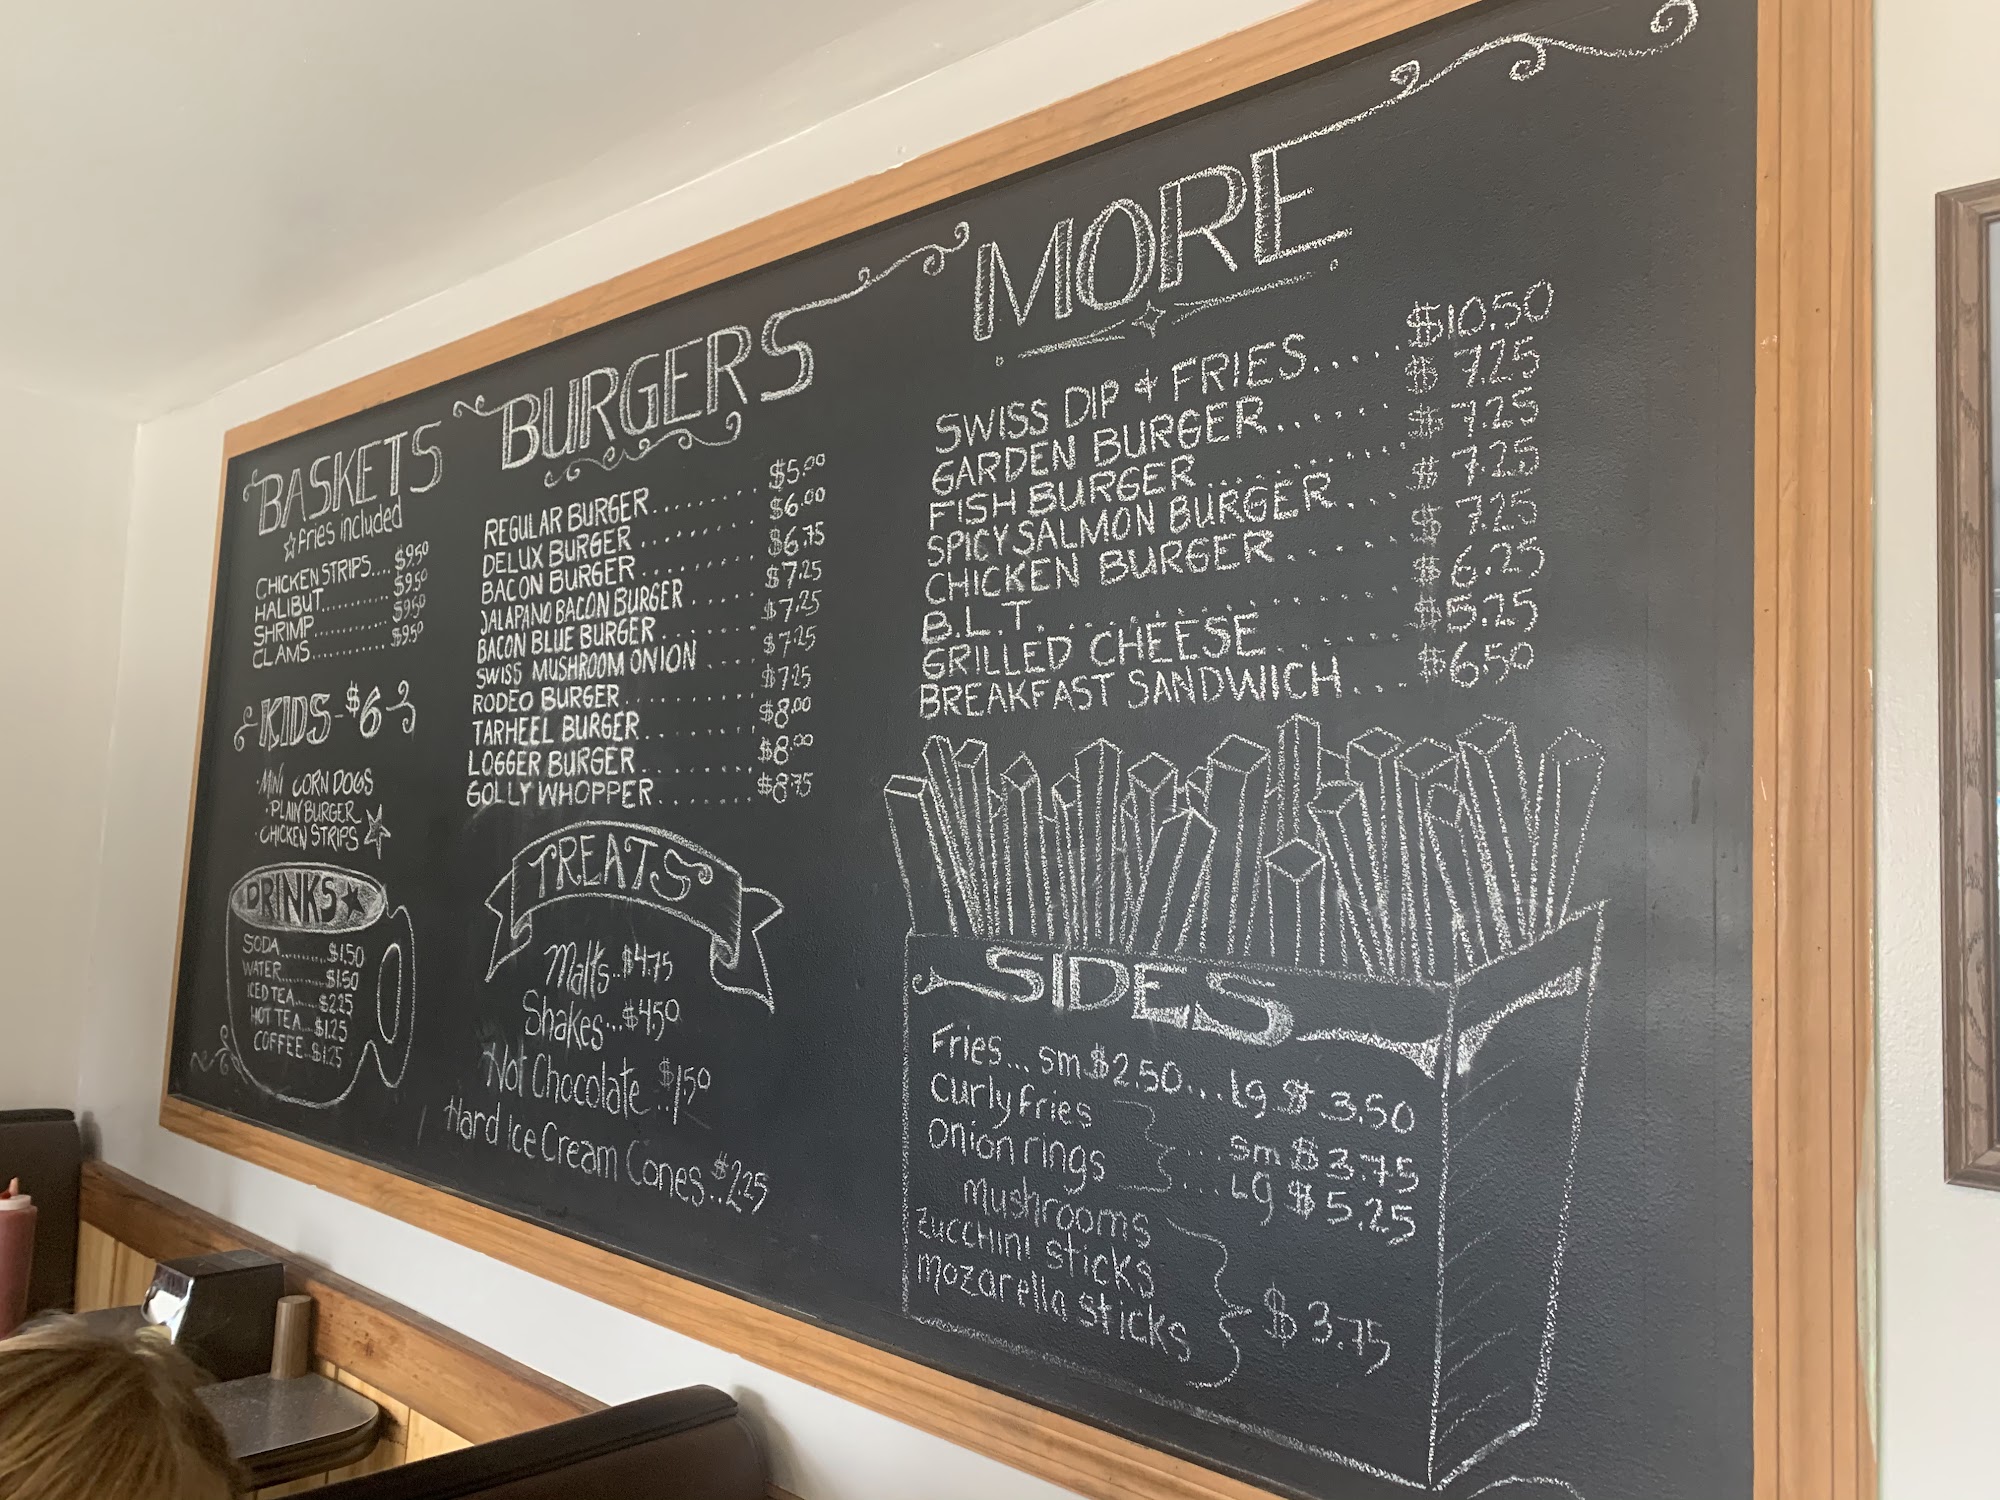 BASKETS
☆ fries included
CHICKEN STRIPS.... $9.50
HALIBUT........... $9.50
SHRIMP............ $9.50
CLAMS............ $9.50
KIDS - $6
· MINI CORN DOGS
· PLAIN BURGER
· CHICKEN STRIPS ☆
DRINKS ★
SODA..........$1.50
WATER.........$1.50
ICED TEA......$2.25
HOT TEA....$1.25
COFFEE..$1.25
BURGERS
REGULAR BURGER........ $5.00
DELUX BURGER ........ $6.00
BACON BURGER ........ $6.75
JALAPANO BACON BURGER ..... $7.25
BACON BLUE BURGER....... $7.25
SWISS MUSHROOM ONION .... $7.25
RODEO BURGER......... $7.25
TARHEEL BURGER........ $8.00
LOGGER BURGER........ $8.00
GOLLY WHOPPER........ $8.75
TREATS
Malts..$4.75
Shakes...$4.50
Hot Chocolate ..$1.50
Hard Ice Cream Cones..$2.25
MORE
SWISS DIP & FRIES..... $10.50
GARDEN BURGER....... $7.25
FISH BURGER........... $7.25
SPICY SALMON BURGER... $7.25
CHICKEN BURGER...... $7.25
B.L.T. .............. $6.25
GRILLED CHEESE....... $5.25
BREAKFAST SANDWICH... $6.50
SIDES
Fries... sm $2.50... Lg $3.50
Curly Fries
Onion rings
....sm $3.75
....Lg $5.25
mushrooms
Zucchini sticks
mozarella sticks
$3.75